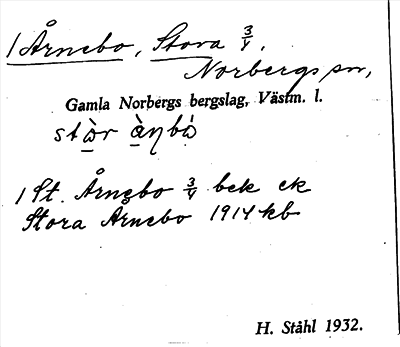 1 Årnebo, Stora 3/4,
Norbergs sn,
Gamla Norbergs bergslag, Västm. l.
stὰr ὰŋbὼ
1 St. Årnebo 3/4 bek ek
Stora Årnebo 1914 kb
H. Ståhl 1932.